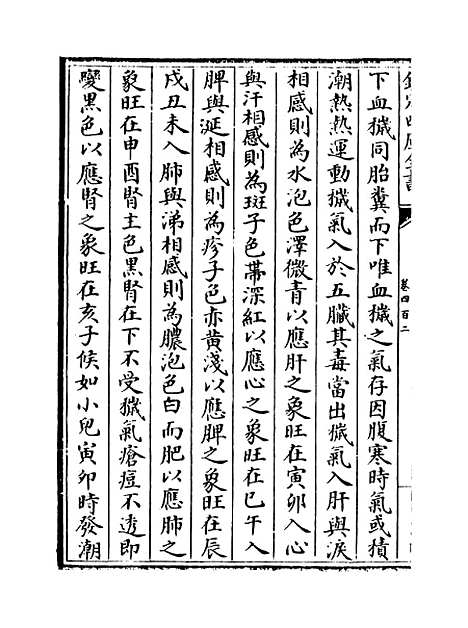 欽定四庫全書
卷四百二
下血穢同胎糞而下唯血穢之氣存因腹寒時氣或積
潮熱熱運動穢氣入於五臟其毒當出穢氣入肝與淚
相感則為水泡色澤微青以應肝之象旺在寅卯入心
與汗相感則為斑子色帯深紅以應心之象旺在巳午入
脾與涎相感則為疹子色赤黄淺以應脾之象旺在辰
戌丑未入肺與涕相感則為膿泡色白而肥以應肺之
象旺在申酉腎主色黒腎在下不受穢氣瘡痘不透即
變黒色以應腎之象旺在亥子候如小兒寅卯時發潮